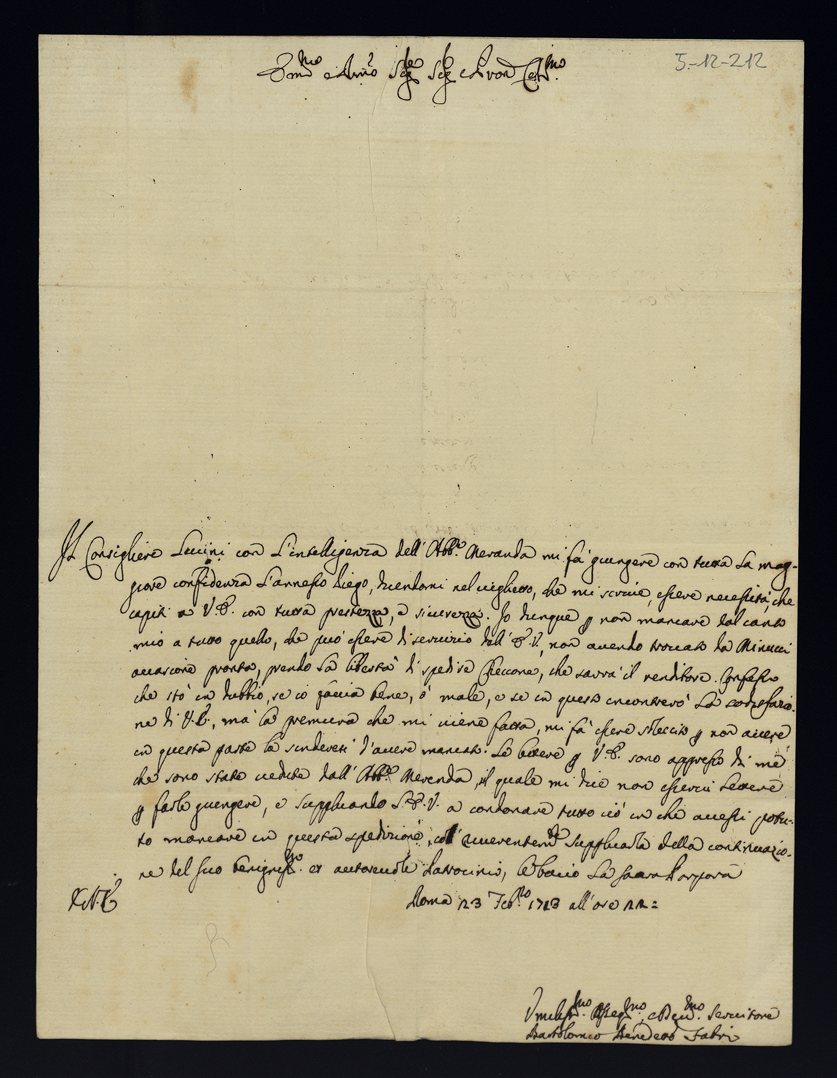 5-12-212
Em.mo e Rmo Sig.re Sig.re e Pron Col.mo
Il Consigliere Lucini con l'intelligenza dell'Abb.e Merenda mi fa' giungere con tutta la mag-
giore confidenza l'annesso Piego, dicendomi nel viglietto, che mi scrive, essere necessità, che
capiti a V.E. con tutta prestezza, e sicurezza. Io dunque p non mancare dal canto
mio a tutto quello, che può essere di servizio dell'E.V., non avendo trovato da Minucci
occasione pronta, prendo la libertà di spedire Checcone, che sarrà il renditore. Confesso
che stò in dubbio, se cò faccia bene, ò male, e se in questo incontrerò la sodisfazio-
ne di V.E., mà la premura che mi viene fatta, mi fà essere sollecito p non avere
in questa parte la sinderesi d'avere mancato. Le lettere p V.E. sono appresso di me
che sono state vedute dall'Abb.e Merenda, il quale mi dice non esservi lettere
p farle giungere, e supplicando l'E.V. a condonare tutto ciò in che avessi potu-
to mancare in questa spedizione, col riverentem.te supplicarla della continuazio-
ne del suo benigniss.mo et autorevole Patrocinio, le bacio la sacra Porpora
Roma 23 Feb.ro 1713 all'ore 22=
Umiliss.mo Osseq.mo, e Dev.mo Servitore
Bartolomeo Benedetto Fabri